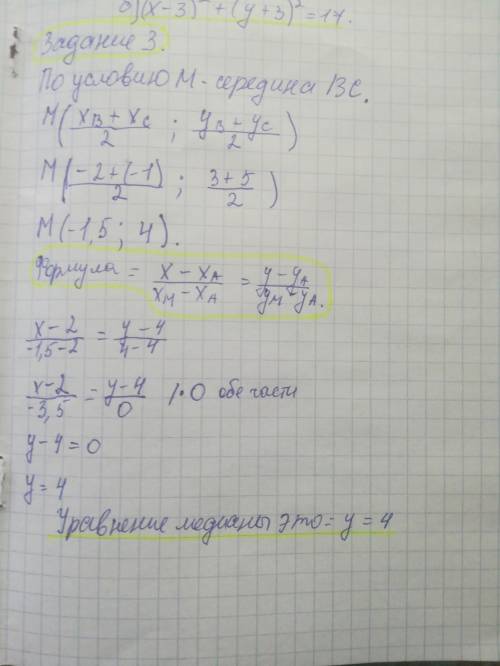 б)(x-3)² + (y+3)² = 17.
Задание 3.
По условию M - середина BC.
M((x_B + x_C)/2 ; (y_B + y_C)/2)
M((-2+(-1))/2 ; (3+5)/2)
M(-1,5 ; 4).
Формула = (x - x_A)/(x_M - x_A) = (y - y_A)/(y_M - y_A).
(x-2)/(-1,5-2) = (y-4)/(4-4)
(x-2)/(-3,5) = (y-4)/0 /·0 обе части
y-4=0
y=4
Уравнение медианы это = y = 4